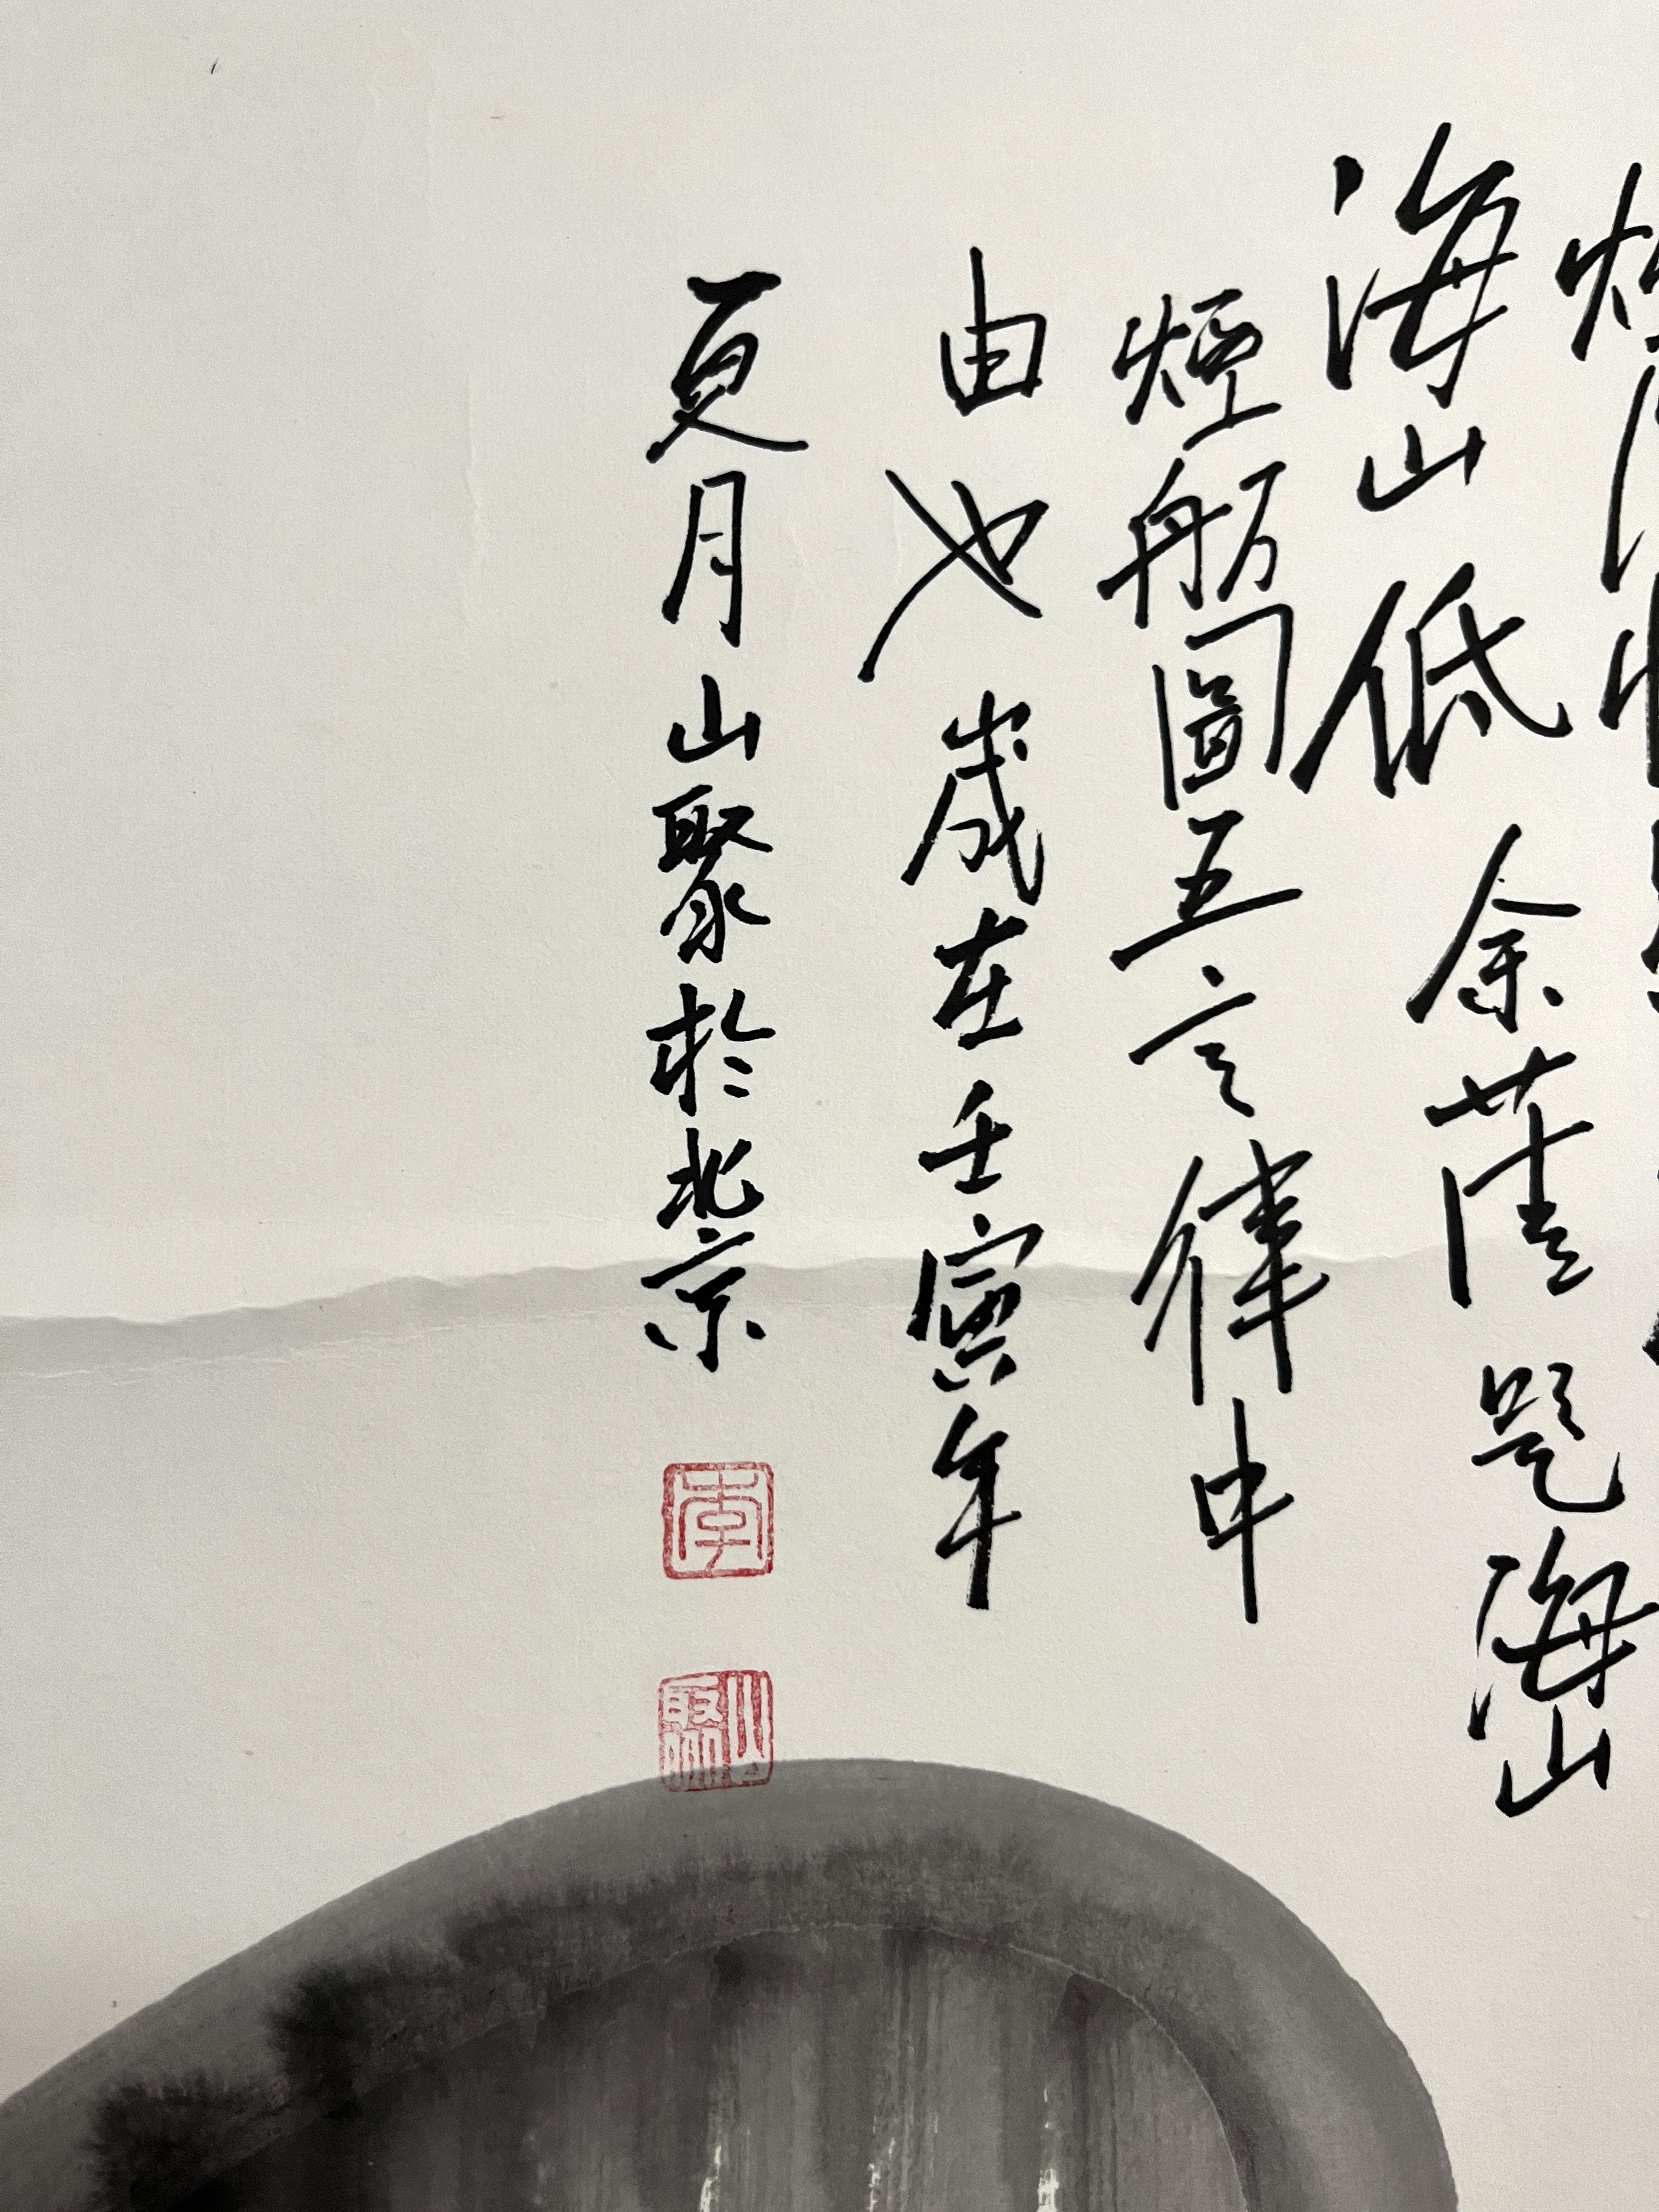 煙
海山低 余 題海山
煙舫圖五言律申
由也 歲在壬寅年
夏月山聚於北京
李
山聚